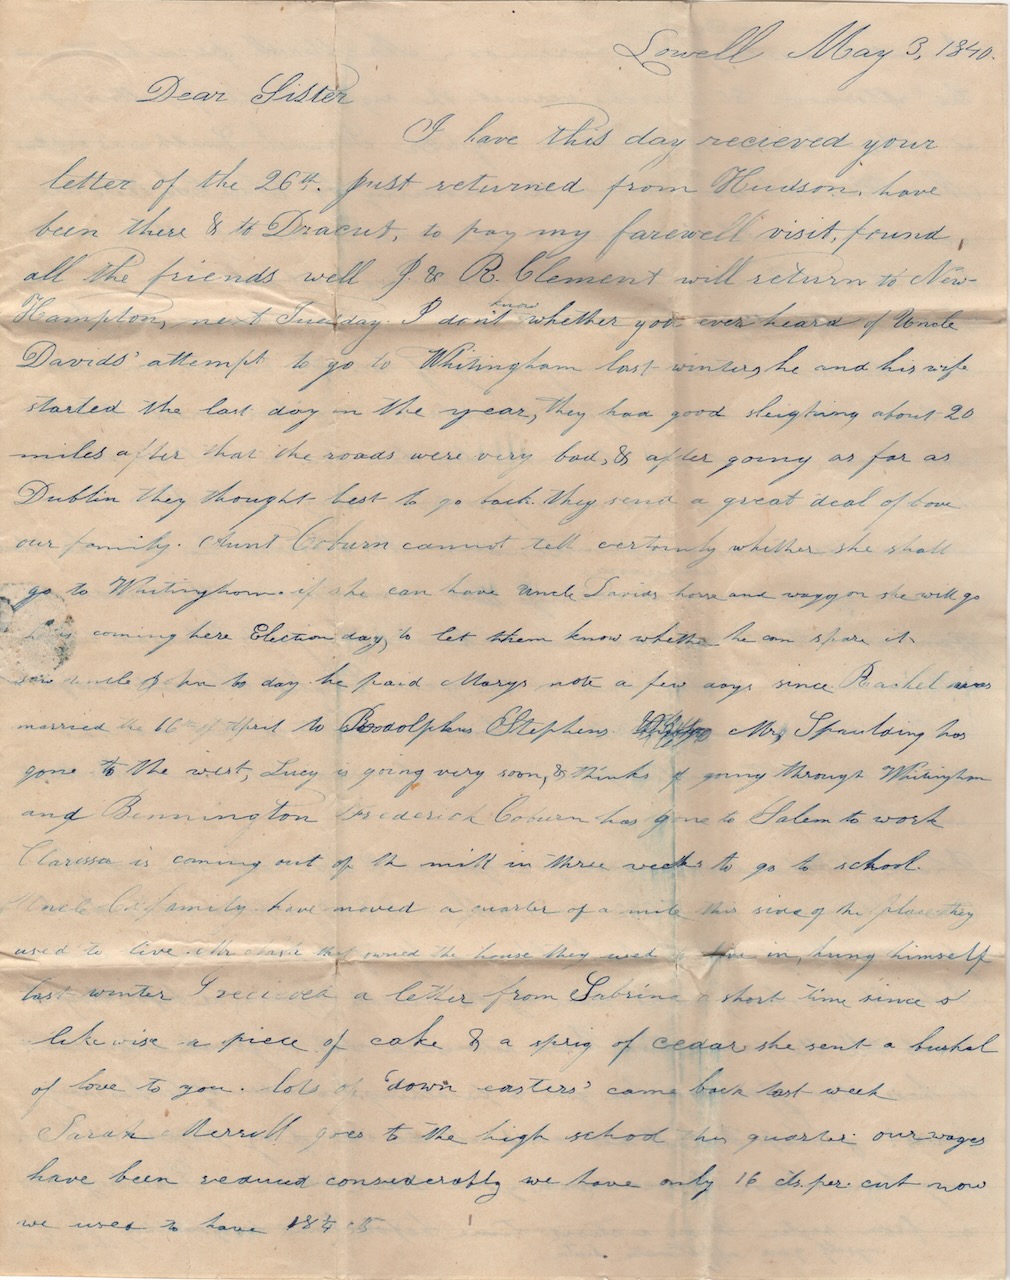 Lowell May 3, 1840.
Dear Sister
I have this day recieved your
letter of the 26th. just returned from Hudson, have
been there & to Dracut, to pay my farewell visit, found
all the friends well J. & R. Clement will return to New-
Hampton, next Tuesday. I don't know whether you ever heard of Uncle
Davids' attempt to go to Whitingham last winter, he and his wife
started the last day in the year, they had good sleighing about 20
miles after that the roads were very bad, & after going as far as
Dublin they thought best to go back. they send a great deal of love
our family. Aunt Coburn cannot tell certainly whether she shall
go to Whitingham. if she can have Uncle Davids horse and waggon she will go
he is coming here Election day, to let them know whether he can spare it
uncle to day he paid Marys note a few days since Rachel was
married the 16th of April to Rodolphus Stephens. Mr. Spaulding has
gone to the west, Lucy is going very soon, & thinks of going through Whitingham
and Bennington Frederick Coburn has gone to Salem to work
Clarissa is coming out of the mill in three weeks to go to school.
Uncle C. family have moved a quarter of a mile this side of the place they
used to live. Mr that owned the house they used to live in, hung himself
last winter I recieved a letter from Sabrina a short time since &
likewise a piece of cake & a sprig of cedar she sent a bushel
of love to you. lots of 'down easters' came back last week
Sarah Merrill goes to the high school this quarter. our wages
have been reduced considerably we have only 16 cts. per. cut now
we used to have 18¼ cts